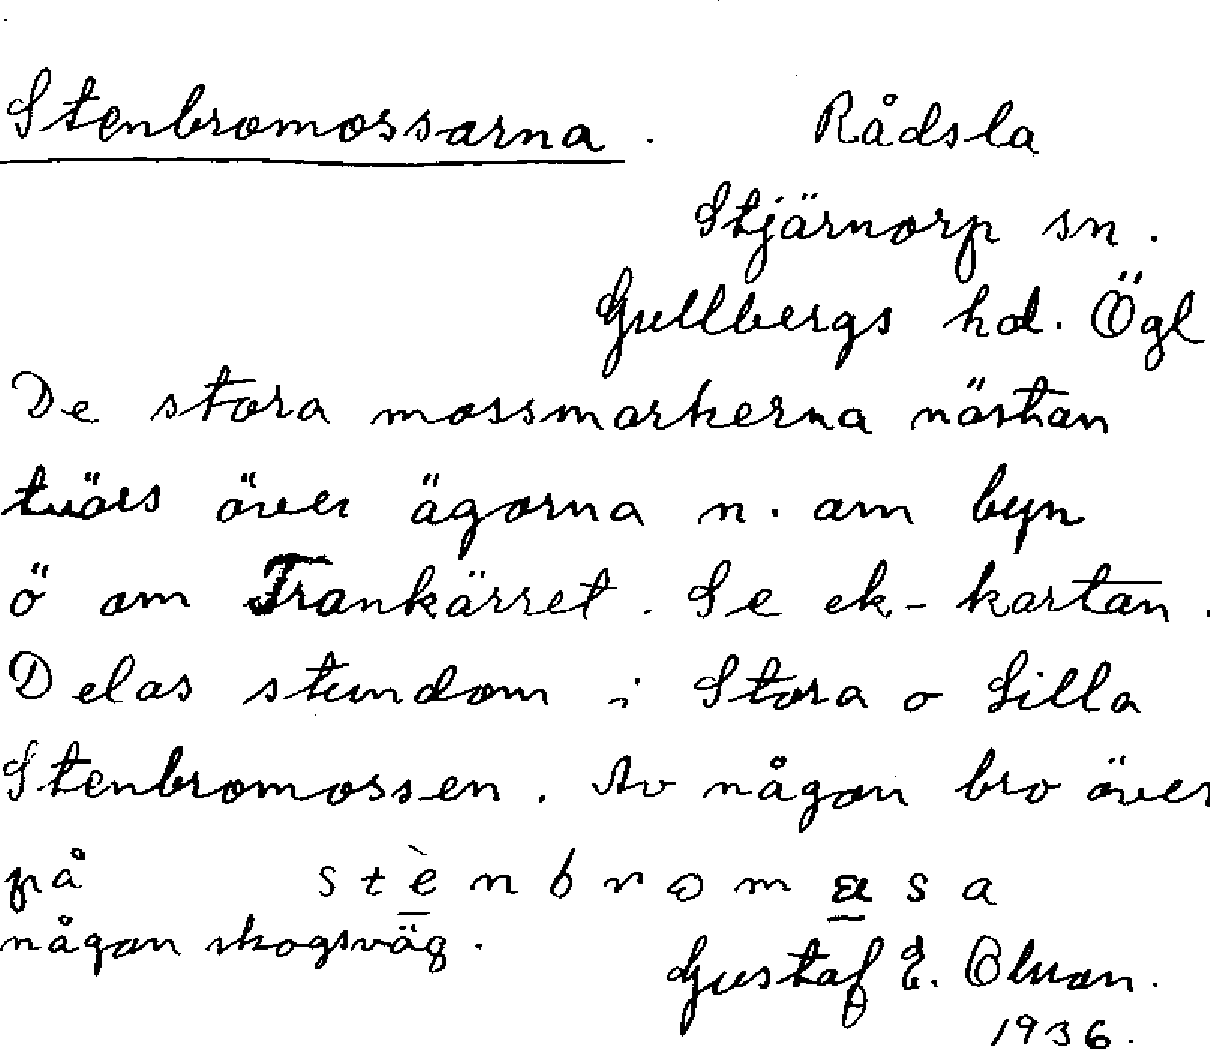 Stenbromossarna. Rådsla
Stjärnorp sn.
Gullbergs hd. Ögl
De stora mossmarkerna nästan
tvärs över ägorna n. om byn
ö om Trankärret. Se ek-kartan.
Delas stundom i Stora o Lilla
Stenbromossen. Av någon bro över
på stè̱nbromo̱sa
någon skogsväg.
Gustaf E. Olson.
1936.